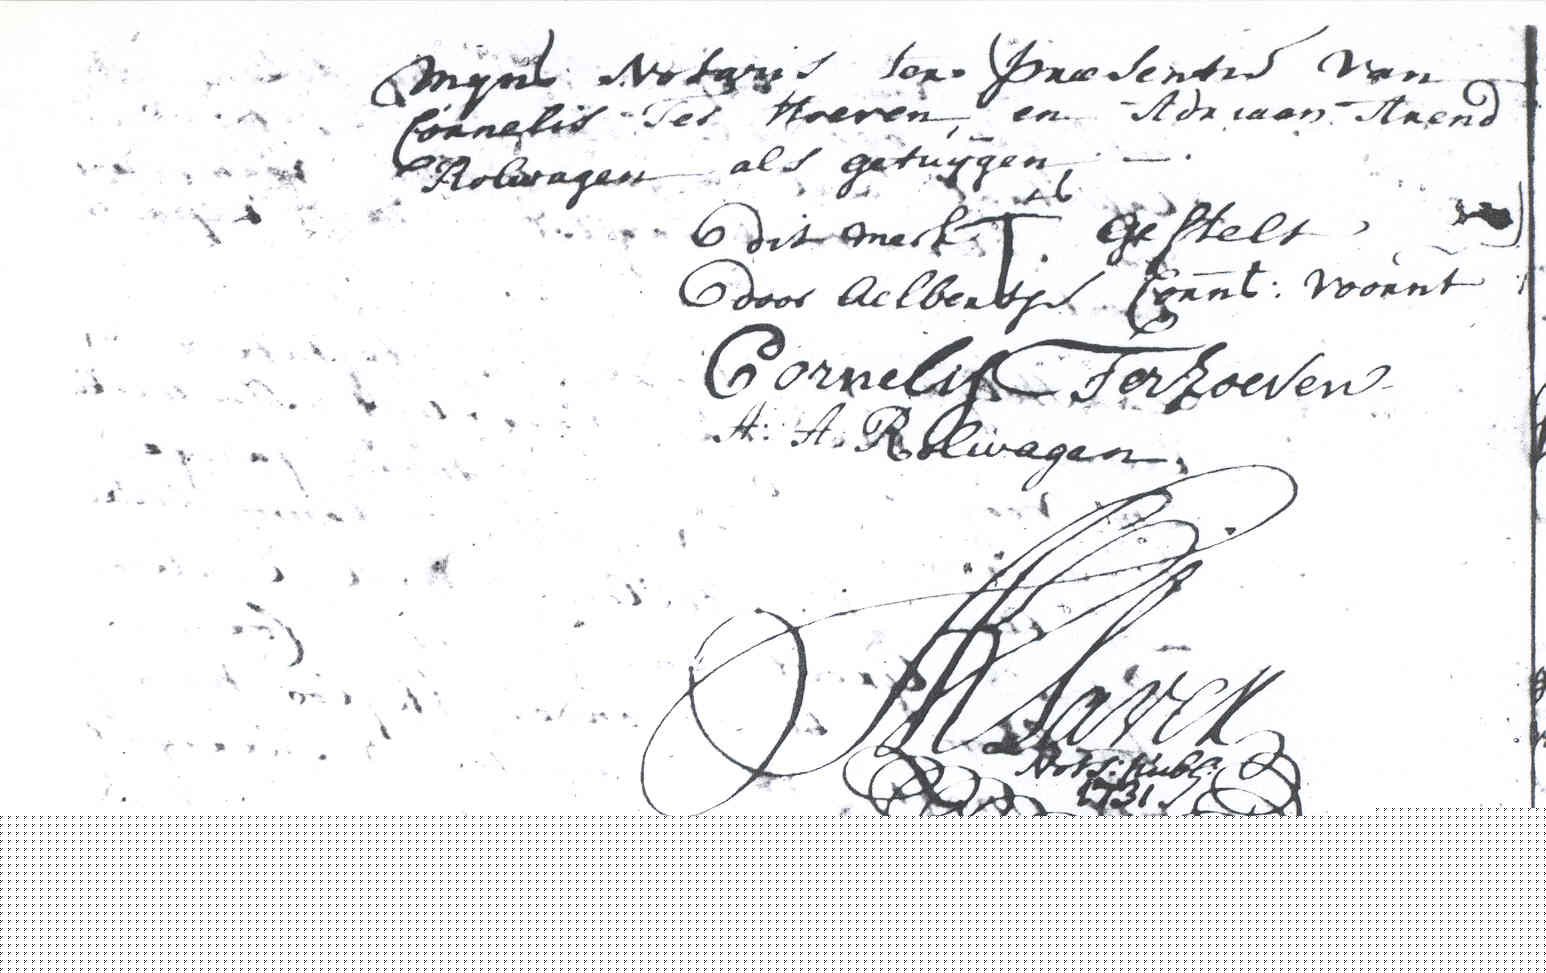 Mijns Notaris ter Præsentie Van
Cornelis Ter Hoeven, en Adriaan Arend
Rolwagen als getuijgen
dit merk T gestelt
door Aelbertje Cornt: voornt
Cornelis Terhoeven
A: A. Rolwagen
Nots: Publ:
1731